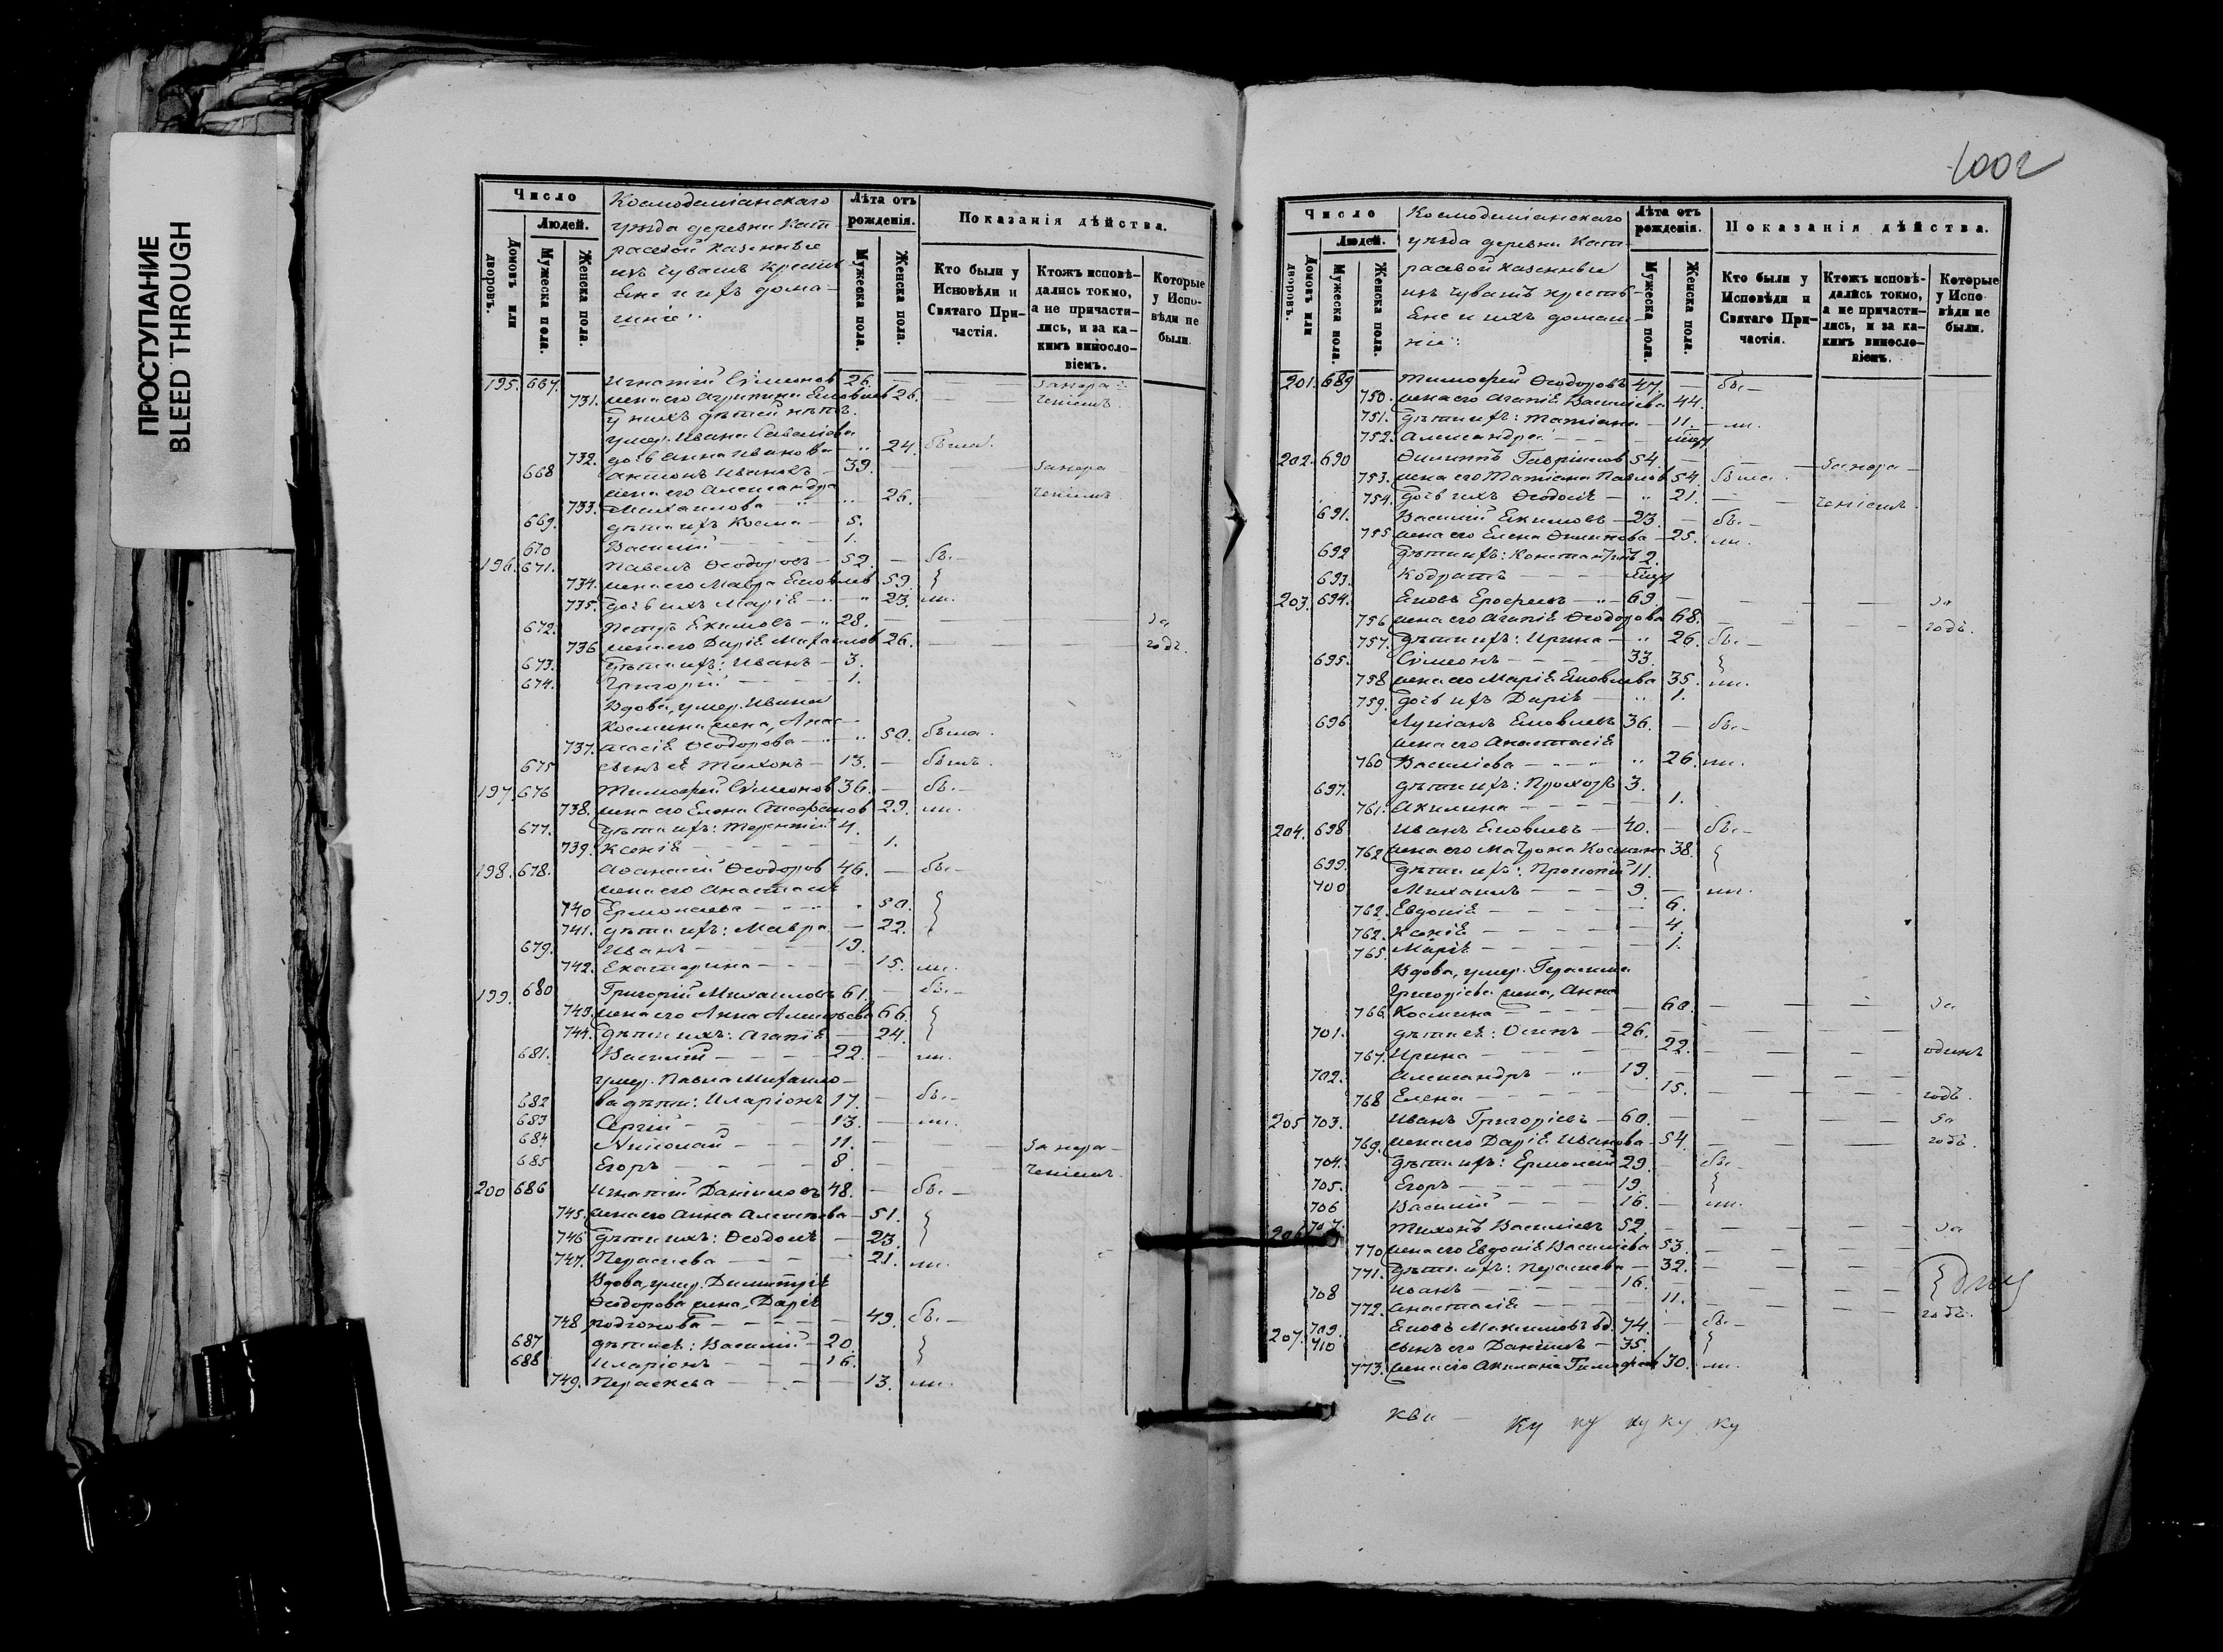 ПРОСТУПАНИЕ
BLEED THROUGH
1002
Число
Людей.
Домовъ или дворовъ.
Мужеска пола.
Женска пола.
Космодеміанскаго
уѣзда деревни Кат
расевой казенные
изъ чувашъ крестья
Ене и ихъ дома-
шніе:
Лѣта отъ рожденія.
Мужеска пола.
Женска пола.
Показанія дѣйства.
Кто были у Исповѣди и Святаго Причастія.
Ктожъ исповѣдались токмо, а не причастились, и за какимъ винословіемъ.
Которые у Исповѣди не были.
195. 667. Игнатій Сѵмеонов 26. — Занера-
731. жена его Агрипина Ековлев 26. — ченіемъ.
у нихъ дѣтей нѣтъ.
умер. Ивана Савеліева
732. дочь Анна Иванова " 24. была.
668 Антонъ Ивановъ 39. — Занера-
жена его Александра
733. Михаилова — " 26. ченіемъ.
669. дѣти ихъ Косма — 5.
670 Василій — 1.
196. 671. Павелъ Ѳеодоровъ — 52. — бы-
734. жена его Мавра Ековлев 59. }
735. дочь ихъ Маріѣ — " 23. ли.
672. Петръ Екимовъ — " 28. — за
736 жена его Даріѣ Михаилов 26. — годъ.
673. дѣти ихъ: Иванъ — 3.
674. Григорій — 1.
Вдова, умер. Ивана
Космина жена, Анас-
737. тасіѣ Ѳеодорова — " 50. была.
675 сынъ еѣ Тихонъ — 13. — былъ.
197. 676 Тимофей Сѵмеонов 36. — бы-
738. жена его Елена Стефанов 29. ли.
677. дѣти ихъ: Терентій 4.
739. Ксеніѣ — 1.
198. 678. Аѳанасій Ѳеодоров 46. — бы-
жена его Анастасіѣ
740 Ермолаева — " 50. }
741. дѣти ихъ: Мавра — 22. }
679. Иванъ — 19.
742. Екатерина — 15. ли.
199. 680 Григорій Михаиловъ 61. — бы-
743. жена его Анна Алексѣева 66. }
744. дѣти ихъ: Агапіѣ — 24. }
681. Василій — 22. — ли.
умер. Павла Михаило-
682 ва дѣти: Иларіонъ 17. — бы-
683 Сергій — 13. — ли.
684 Николай — 11. — За нера-
685 Егоръ — 8. — ченіемъ.
200 686 Игнатій Даніиловъ 48. — бы-
745. жена его Анна Алексѣева — 51. }
746 дѣти ихъ: Ѳеодосіѣ — 23. }
747. Пераскева — 21. ли.
Вдова, умер. Димитріѣ
Ѳеодорова жена, Даріѣ
748 Родіонова — 49. бы-
687 дѣти еѣ: Василій — 20. }
688 Иларіонъ — 16. }
749. Пераскева — 13. ли.
Число
Людей.
Домовъ или дворовъ.
Мужеска пола.
Женска пола.
Космодеміанскаго
уѣзда деревни Кат-
расевой казенные
изъ чувашъ крестья-
Ене и ихъ домаш-
ніе:
Лѣта отъ рожденія.
Мужеска пола.
Женска пола.
Показанія дѣйства.
Кто были у Исповѣди и Святаго Причастія.
Ктожъ исповѣдались токмо, а не причастились, и за какимъ винословіемъ.
Которые у Исповѣди не были.
201. 689 Тимофей Ѳеодоровъ 47. — бы-
750. жена его Агапіѣ Василіева 44.
751. дѣти ихъ: Татіана — 11. — ли.
752. Александра
202. 690 Филиппъ Гавріилов 54. — Занера-
753. жена его Татіана Павлов 54 была.
754. дочь ихъ Ѳеодосіѣ — " 21. — ченіемъ.
691. Василій Екимовъ — 23. — бы-
755 жена его Елена Филипова — 25. ли.
692 дѣти ихъ: Константинъ 2.
693. Кодратъ
203. 694. Ековъ Ерофеевъ — " 69. — за
756 жена его Агапіѣ Ѳеодорова 68. — годъ.
757. дѣти ихъ: Ирина — " 26. бы-
695. Сѵмеонъ — 33. }
758 жена его Маріѣ Ековлева 35. ли.
759. дочь ихъ Даріѣ — " 1.
696 Лукіанъ Ековлевъ 36. — бы-
жена его Анастасіѣ
760 Василіева — " 26. ли.
697. дѣти ихъ: Прохоръ 3.
761. Акилина — 1.
204. 698 Иванъ Ековлевъ — 40. — бы-
762 жена его Матрона Космина 38. }
699. дѣти ихъ: Прокопій 11.
700 Михаилъ — 9. — ли.
762. Евдокіѣ — 6.
762. Ксеніѣ — 4.
765. Маріѣ — 1.
Вдова, умер. Герасима
Григоріева жена, Анна
766. Космина — 60. — за
701. дѣти еѣ: Осипъ — 26. —
767. Ирина — 22. — одинъ
702. Александръ — " 19. —
768 Елена — 15. — годъ.
205 703. Иванъ Григоріевъ — 60. — за
769. жена его Даріѣ Иванова — 54. — годъ.
704. дѣти ихъ: Ермолай 29. — бы-
705. Егоръ — 19 }
706 Василій — 16. — ли.
206 707. Тихонъ Василіевъ 52. — за
770 жена его Евдокіѣ Василіева 53. —
771. дѣти ихъ: Пераскева — 32. —
708 Иванъ — 16. —
772. Анастасіѣ — 11. — годъ.
207. 709. Ековъ Максимовъ вд. 74. — бы-
710 сынъ его Даніилъ — 35. }
773. жена его Акилина Тимофеев 30. ли.
ку ку ку ку ку